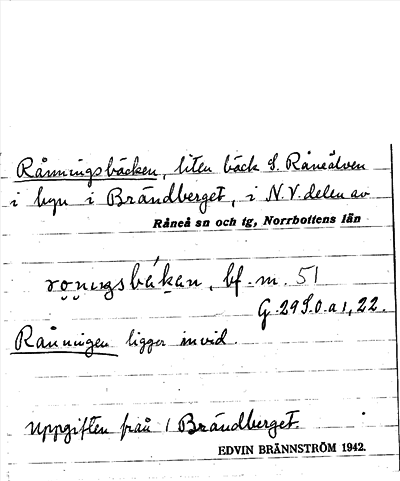 Rånningsbäcken, liten bäck S. Råneälven
i byn i Brändberget, i N.V. delen av
Råneå sn och tg, Norrbottens län
bf. m. 51
G. 29 S.O. a 1, 22.
Rånningen ligger invid.
Uppgiften från 1 Brändberget.
EDVIN BRÄNNSTRÖM 1942.